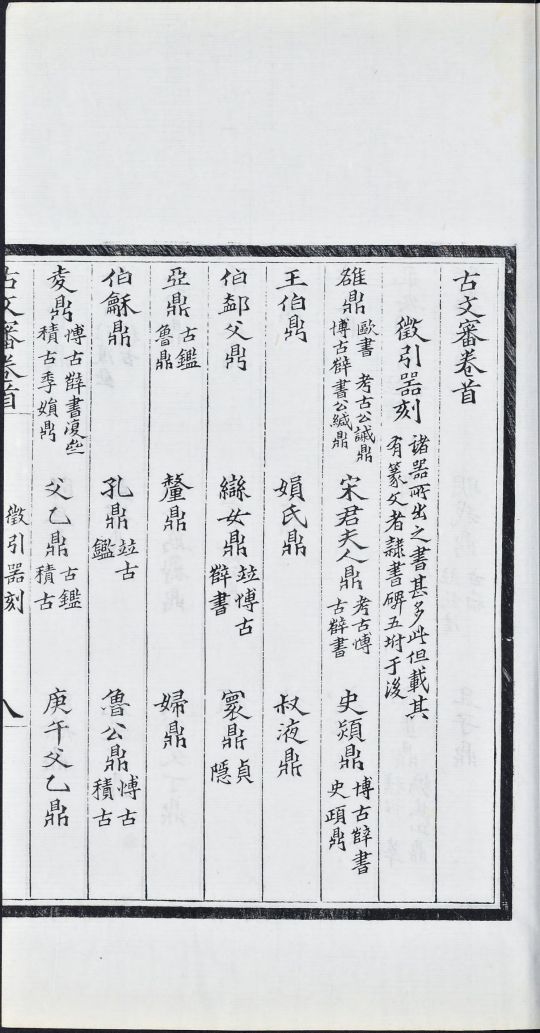 古文審卷首
徵引器刻 諸器所出之書甚多此但載其有篆文者隸書碑五坿于後
雝鼎 歐書 考古公諴鼎 博古辥書公緘鼎 宋君夫人鼎 考古博古辥書 史頙鼎 博古辥書史頙鼎
王伯鼎 娟氏鼎 叔液鼎
伯郄父鼎 䜌女鼎 竝博古辥書 寰鼎 貞隱
亞鼎 古鑑魯鼎 釐鼎 婦鼎
伯龢鼎 孔鼎 竝古鑑 魯公鼎 博古積古
夌鼎 博古辥書㝛些積古季娟鼎 父乙鼎 古鑑積古 庚午父乙鼎
古文審卷首 徵引器刻 八